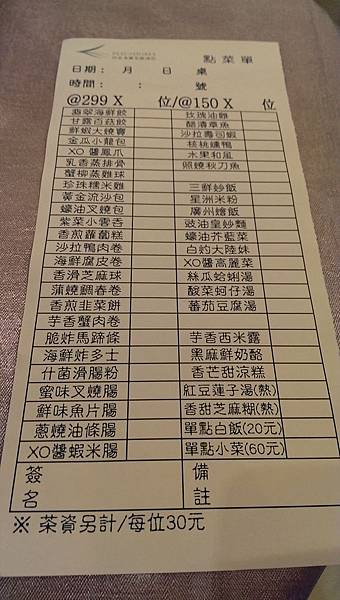 點菜單
日期: 月 日 桌
時間: : 號
@299 X 位/@150 X 位
翡翠海鮮餃 玫瑰油雞
甘露百菇餃 醋漬章魚
鮮蝦大燒賣 沙拉壽司蝦
金瓜小籠包 核桃燻鴨
XO醬鳳爪 水果和風
乳香蒸排骨 照燒秋刀魚
蟹柳蒸雞球
珍珠糯米雞 三鮮炒飯
黃金流沙包 星洲米粉
蠔油叉燒包 廣州燴飯
紫菜小雲吞 豉油皇炒麵
香煎蘿蔔糕 蠔油芥藍菜
沙拉鴨肉卷 白灼大陸妹
海鮮腐皮卷 XO醬高麗菜
香滑芝麻球 絲瓜蛤蜊湯
蒲燒鯛春卷 酸菜蚵仔湯
香煎韭菜餅 蕃茄豆腐湯
芋香蟹肉卷
脆炸馬蹄條 芋香西米露
海鮮炸多士 黑麻鮮奶酪
什菌滑腸粉 香芒甜涼糕
蜜味叉燒腸 紅豆蓮子湯(熱)
鮮味魚片腸 香甜芝麻糊(熱)
蔥燒油條腸 單點白飯(20元)
XO醬蝦米腸 單點小菜(60元)
簽名 備註
※ 茶資另計/每位30元